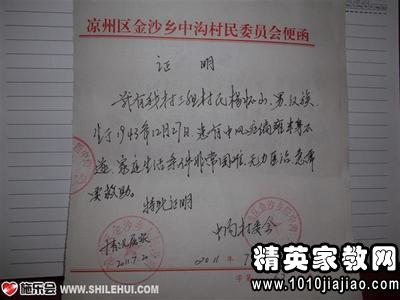 凉州区金沙乡中沟村民委员会便函
证 明
兹有我村三组村民杨怀山,男,汉族,
生于1943年12月27日,患有中风症偏瘫半身不
遂,家庭生活条件非常困难,无力医治,急需
要救助。
特此证明
中沟村委会
情况属实
2011.7.20
2011 7
施乐会
WWW.SHILEHUI.COM
精英家教网
www.1010jiajiao.com